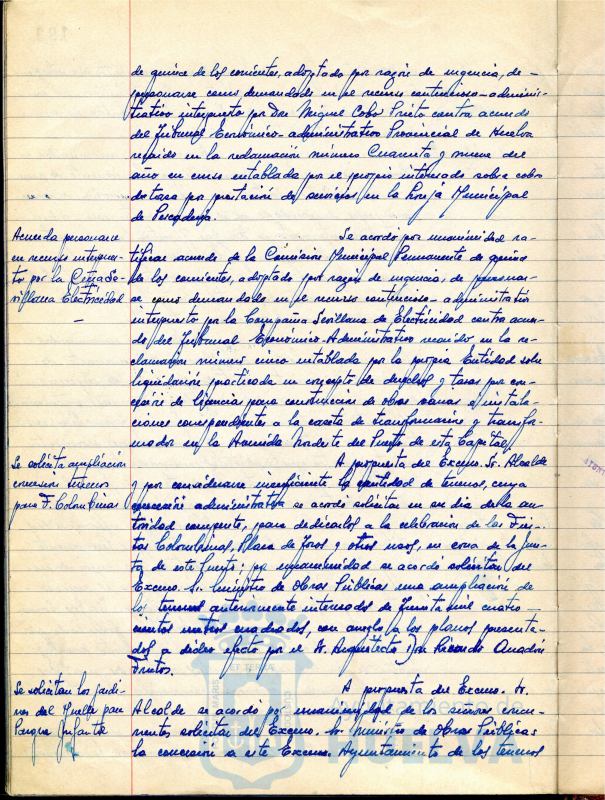 de quince de los corrientes, adoptado por razón de urgencia, de
personarse como demandado en el recurso contencioso-adminis-
trativo interpuesto por Don Miguel Cobo Prieto contra acuerdo
del Tribunal Económico-administrativo Provincial de Huelva
recaído en la reclamación número Cuarenta y nueve del
año en curso entablada por el propio interesado sobre cobro
de tasas por prestación de servicios en la Lonja Municipal
de Pescadería.
Acuerda personarse
en recurso interpues-
to por la Cñía Se-
villana Electricidad
Se acordó por unanimidad ra-
tificar acuerdo de la Comisión Municipal Permanente de quince
de los corrientes, adoptado por razón de urgencia, de personar-
se como demandado en el recurso contencioso-administrativo
interpuesto por la Compañía Sevillana de Electricidad contra acuer-
do del Tribunal Económico-Administrativo recaído en la re-
clamación número cinco entablada por la propia Entidad sobre
liquidación practicada en concepto de derechos y tasas por con-
cesión de licencia para construcción de obras varias e instala-
ciones correspondientes a la caseta de transformación y transfor-
mador en la Avenida Nordeste del Puerto de esta Capital.
Se solicita ampliación
concesión terrenos
para F. Colombinas
A propuesta del Excmo. Sr. Alcalde
y por considerarse insuficiente la cantidad de terrenos, cuya
concesión administrativa se acordó solicitar en su día de la au-
toridad competente, para dedicarlos a la celebración de las Fies-
tas Colombinas, Plaza de Toros y otros usos, en zona de la Jun-
ta de este Puerto; por unanimidad se acordó solicitar del
Excmo. Sr. Ministro de Obras Públicas una ampliación de
los terrenos anteriormente interesados de Treinta mil cuatro-
cientos metros cuadrados, con arreglo a los planos presenta-
dos a dicho efecto por el Sr. Arquitecto Don Ricardo Anadón
Frutos.
Se solicitan los jardi-
nes del Muelle para
Parque Infantil
A propuesta del Excmo. Sr.
Alcalde se acordó por unanimidad de los señores concu-
rrentes, solicitar del Excmo. Sr. Ministro de Obras Públicas
la concesión a este Excmo. Ayuntamiento de los terrenos